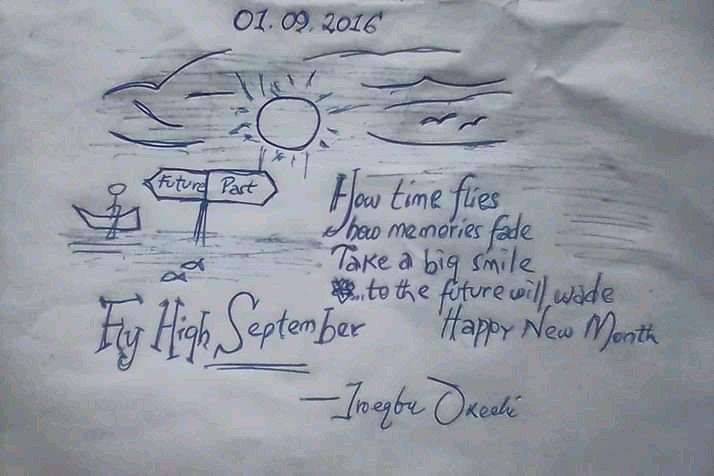 01.09.2016
Future Past
How time flies
how memories fade
Take a big smile
...to the future will wade
Fly High September
Happy New Month
— Iroegbu Okechi